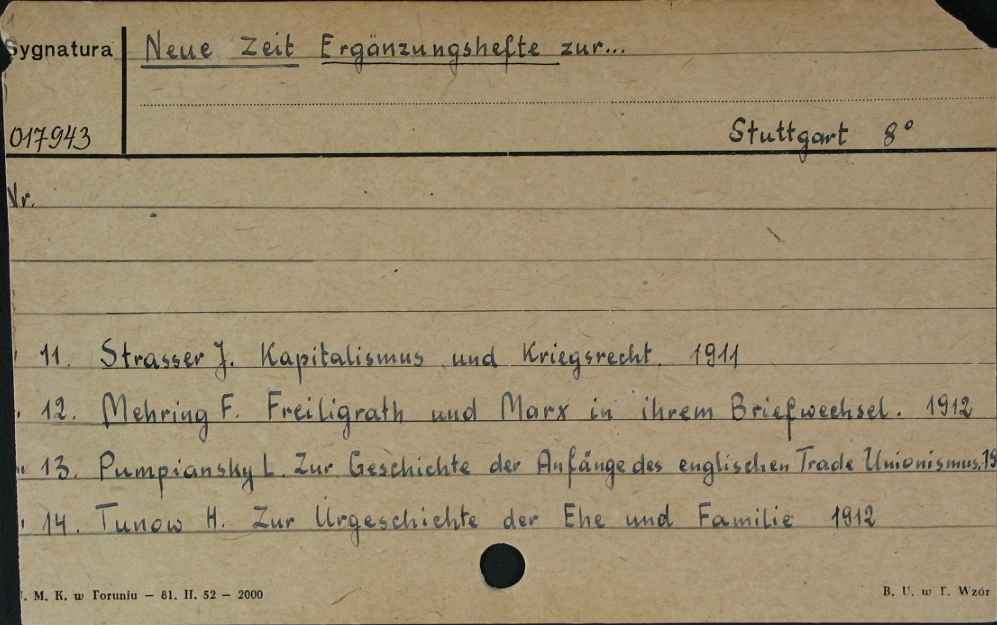 Sygnatura Neue Zeit Ergänzungshefte zur...
017943 Stuttgart 8°
Nr.
11. Strasser J. Kapitalismus und Kriegsrecht. 1911
12. Mehring F. Freiligrath und Marx in ihrem Briefwechsel. 1912
13. Pumpiansky L. Zur Geschichte der Anfänge des englischen Trade Unionismus. 19
14. Tunow H. Zur Urgeschichte der Ehe und Familie 1912
. M. K. w Toruniu — 81. II. 52 — 2000 B. U. w T. Wzór